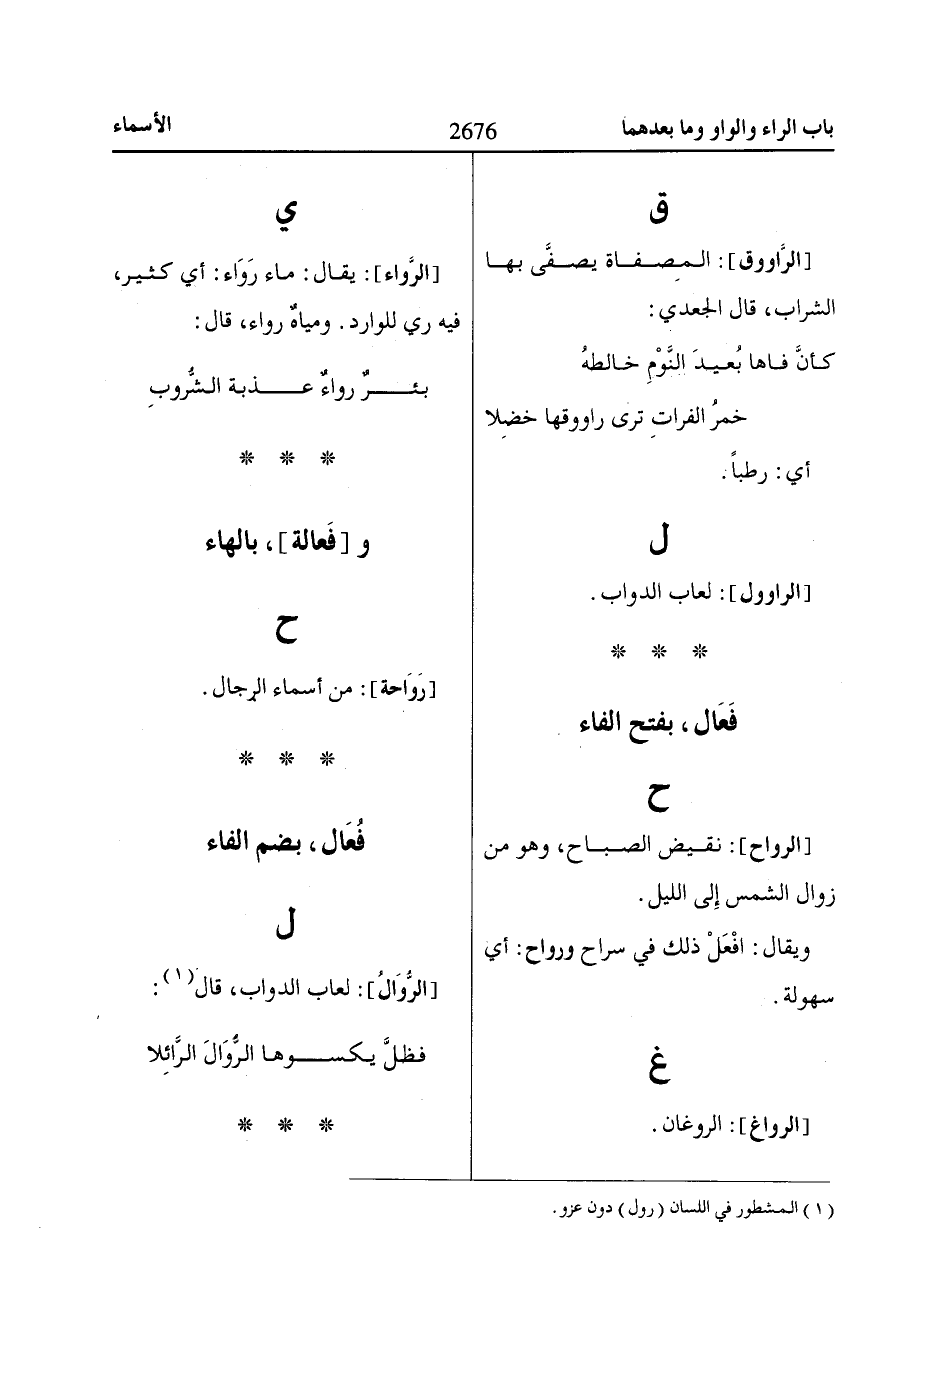 باب الراء والواو وما بعدهما
2676
الأسماء
ق
[الرَّاووق]: المصفاة يصفَّى بها
الشراب، قال الجعدي:
كأنَّ فاها بُعيدَ النَّوْمِ خالطهُ
خمرُ الفراتِ ترى راووقها خضلا
أي: رطباً.
ل
[الراوول]: لعاب الدواب.
* * *
فَعَال، بفتح الفاء
ح
[الرواح]: نقيض الصباح، وهو من
زوال الشمس إلى الليل.
ويقال: افْعَلْ ذلك في سراح ورواح: أي
سهولة.
غ
[الرواغ]: الروغان.
ي
[الرَّواء]: يقال: ماء رَوَاء: أي كثير،
فيه ري للوارد. ومياهٌ رواء، قال:
بئرٌ رواءٌ عذبة الشُّروبِ
* * *
و [فَعالة]، بالهاء
ح
[رَوَاحة]: من أسماء الرجال.
* * *
فُعَال، بضم الفاء
ل
[الرُّوَالُ]: لعاب الدواب، قال(١):
فظلَّ يكسوها الرُّوَالَ الرَّائِلا
* * *
(١) المشطور في اللسان (رول) دون عزو.